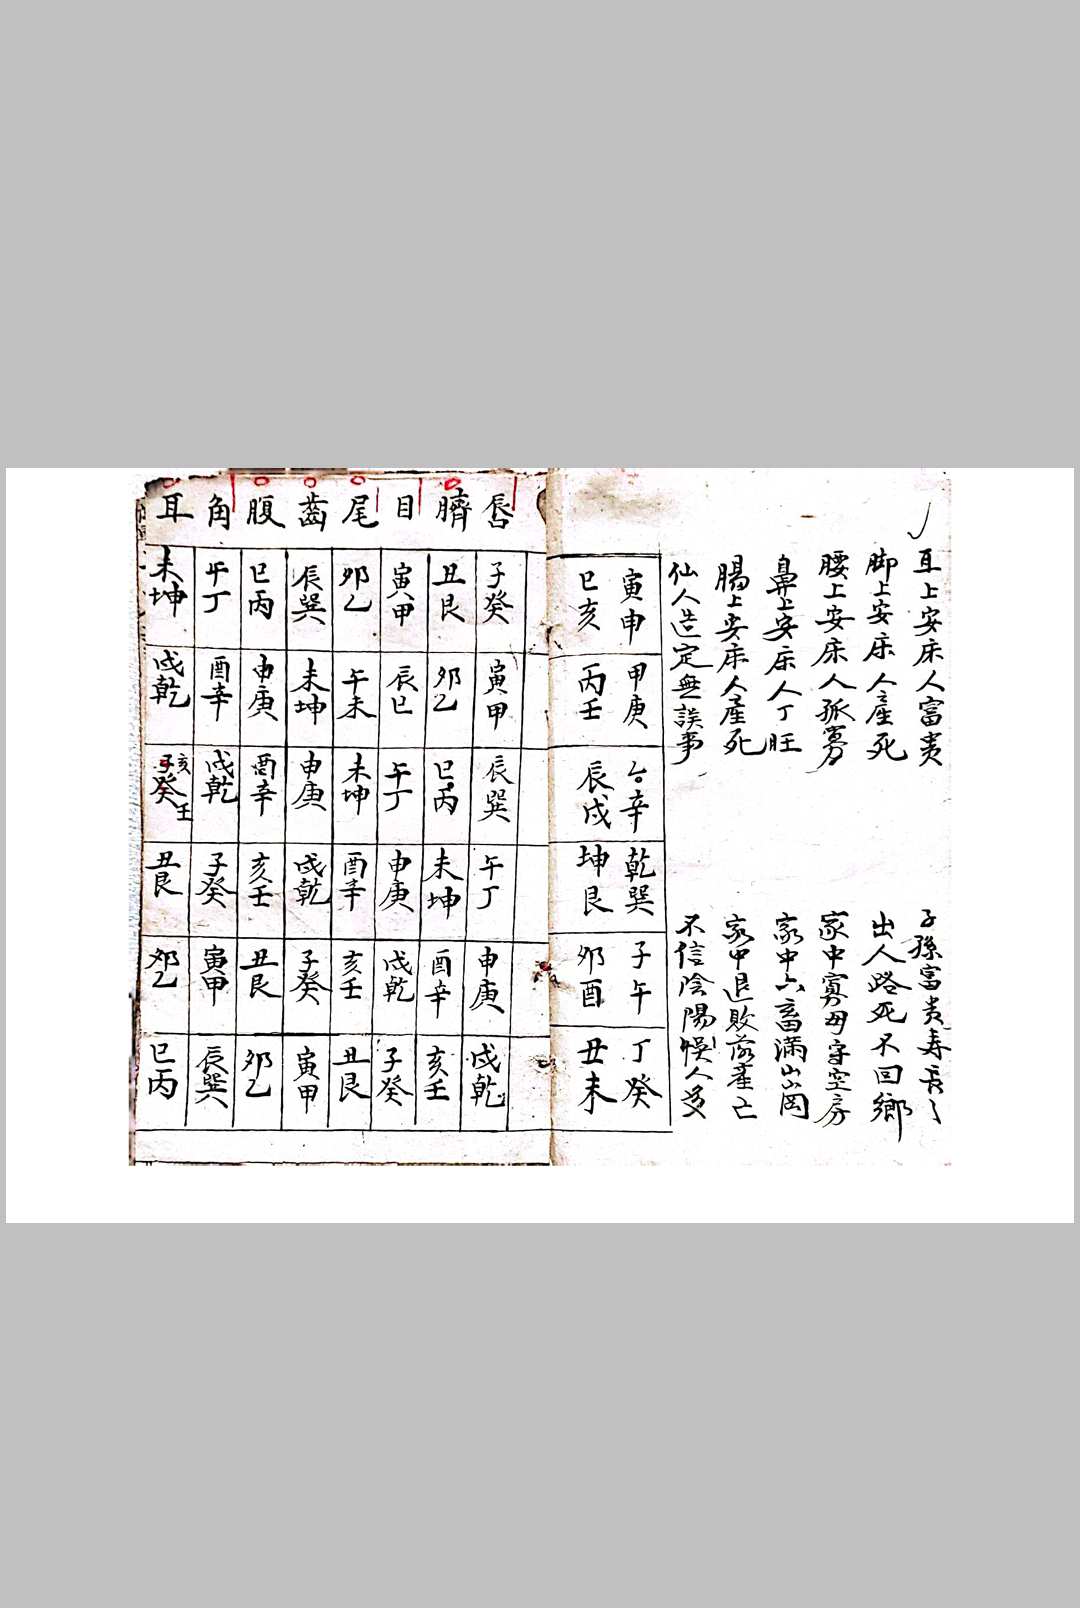 耳上安床人富貴
子孫富貴寿長久
脚上安床人產死
出人路死不回鄉
腰上安床人孤寡
家中寡母守空房
鼻上安床人丁旺
家中六畜滿山崗
腸上安床人產死
家中退敗落產亡
仙人造定無誤事
不信陰陽悞人
寅申 甲庚 辛 乾巽 子午 丁癸
巳亥 丙壬 辰戌 坤艮 卯酉 丑未
唇 臍 目 尾 齒 腹 角 耳
子癸 丑艮 寅甲 卯乙 辰巽 巳丙 午丁 未坤
寅甲 卯乙 辰巳 午未 未坤 申庚 酉辛 戌乾
辰巽 巳丙 午丁 未坤 申庚 酉辛 戌乾 子癸 亥壬
午丁 未坤 申庚 酉辛 戌乾 亥壬 子癸 丑艮
申庚 酉辛 戌乾 亥壬 子癸 丑艮 寅甲 卯乙
戌乾 亥壬 子癸 丑艮 寅甲 卯乙 辰巽 巳丙